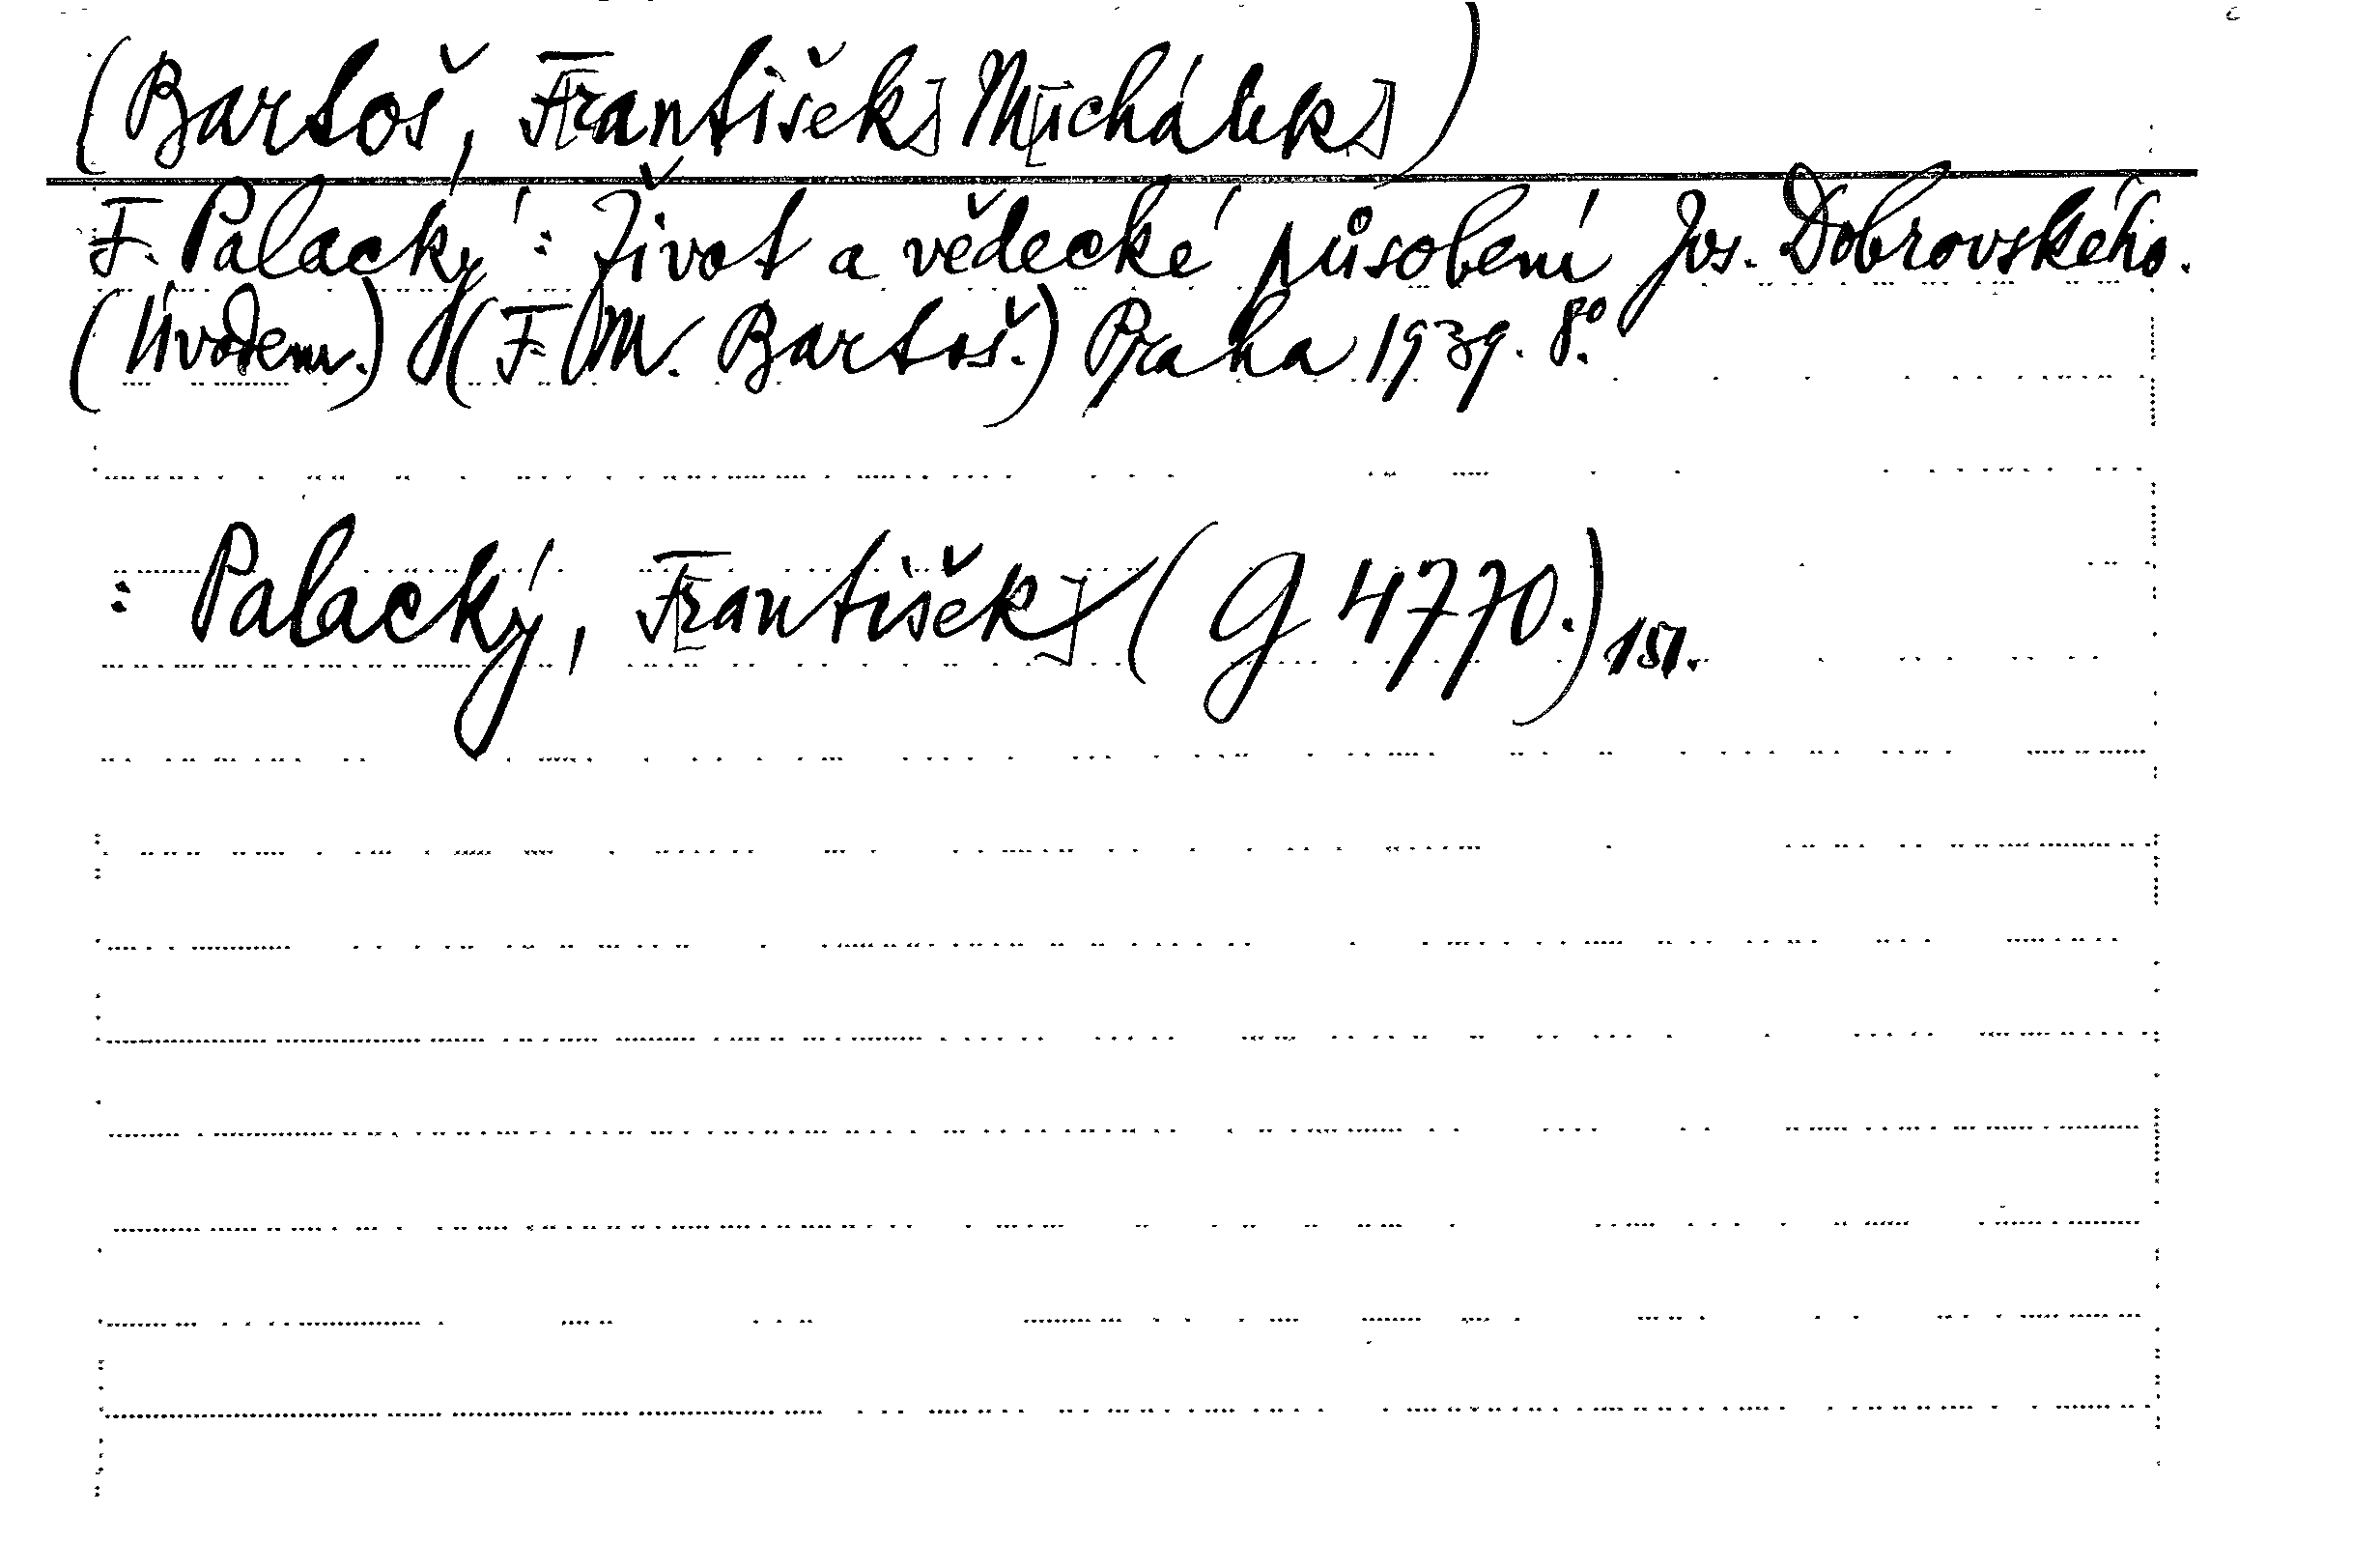 (Bartoš, F[rantišek] M[ichálek])
F. Palacký: Život a vědecké působení Jos. Dobrovského.
(Úvodem.) (F. M. Bartoš.) Praha 1939. 8°.
: Palacký, F[rantišek] (G 4770.)